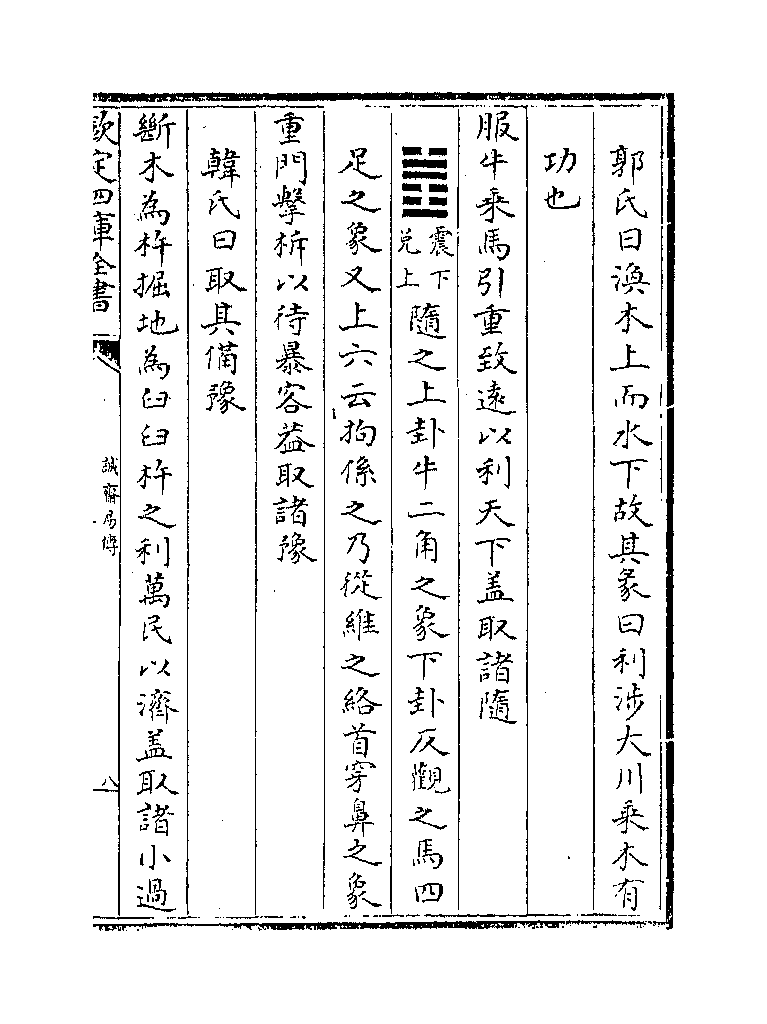 郭氏曰渙木上而水下故其彖曰利涉大川乘木有
功也
服牛乘馬引重致遠以利天下盖取諸隨
䷐震下兑上隨之上卦牛二角之象下卦反觀之馬四
足之象又上六云拘係之乃從維之絡首穿鼻之象
重門擊柝以待暴客盖取諸豫
韓氏曰取其備豫
斷木為杵掘地為臼臼杵之利萬民以濟盖取諸小過
欽定四庫全書
誠齋易傳
八